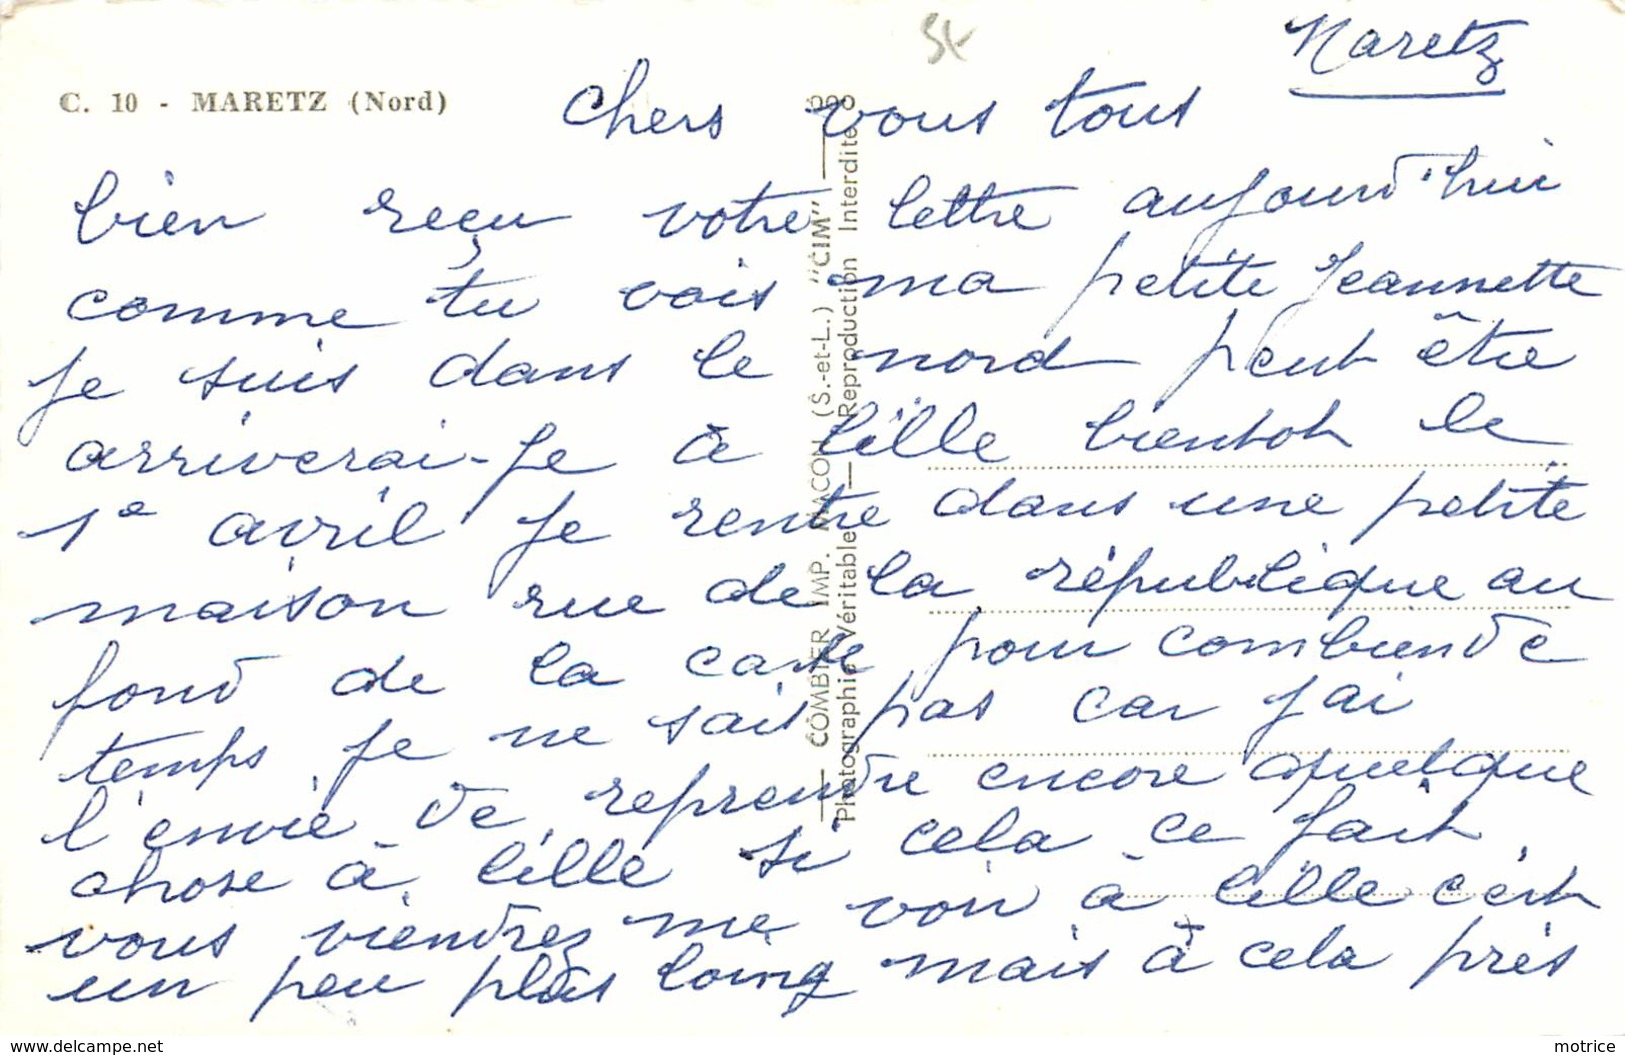 Maretz
C. 10 - MARETZ (Nord)
chers vous tous
bien reçu votre lettre aujourd'hui
comme tu vois ma petite Jeannette
je suis dans le nord peut être
arriverai-je à lille bientot le
1e avril je rentre dans une petite
maison rue de la république au
fond de la carte pour combien de
temps je ne sait pas car j'ai
l'envie de reprendre encore quelque
chose à lille si cela ce fait
vous viendrez me voir à lille c'est
un peu plus loing mais à cela près
COMBIER IMP. MACON (S.-et-L.) "CIM"
Photographie Véritable — Reproduction Interdite
www.delcampe.net
motrice